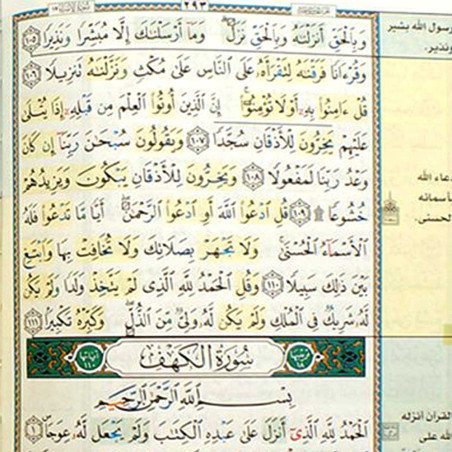 ٢٩٣
وَبِالْحَقِّ أَنزَلْنَٰهُ وَبِالْحَقِّ نَزَلَ ۗ وَمَا أَرْسَلْنَٰكَ إِلَّا مُبَشِّرًا وَنَذِيرًا ١٠٥
وَقُرْءَانًا فَرَقْنَٰهُ لِتَقْرَأَهُ عَلَى النَّاسِ عَلَىٰ مُكْثٍ وَنَزَّلْنَٰهُ تَنزِيلًا ١٠٦
قُلْ ءَامِنُوا بِهِ أَوْ لَا تُؤْمِنُوا ۚ إِنَّ الَّذِينَ أُوتُوا الْعِلْمَ مِن قَبْلِهِ إِذَا يُتْلَىٰ
عَلَيْهِمْ يَخِرُّونَ لِلْأَذْقَانِ سُجَّدًا ١٠٧ وَيَقُولُونَ سُبْحَٰنَ رَبِّنَا إِن كَانَ
وَعْدُ رَبِّنَا لَمَفْعُولًا ١٠٨ وَيَخِرُّونَ لِلْأَذْقَانِ يَبْكُونَ وَيَزِيدُهُمْ
خُشُوعًا ۩ ١٠٩ قُلِ ادْعُوا اللَّهَ أَوِ ادْعُوا الرَّحْمَٰنَ ۖ أَيًّا مَّا تَدْعُوا فَلَهُ
الْأَسْمَاءُ الْحُسْنَىٰ ۚ وَلَا تَجْهَرْ بِصَلَاتِكَ وَلَا تُخَافِتْ بِهَا وَابْتَغِ
بَيْنَ ذَٰلِكَ سَبِيلًا ١١٠ وَقُلِ الْحَمْدُ لِلَّهِ الَّذِي لَمْ يَتَّخِذْ وَلَدًا وَلَمْ يَكُن
لَّهُ شَرِيكٌ فِي الْمُلْكِ وَلَمْ يَكُن لَّهُ وَلِيٌّ مِّنَ الذُّلِّ ۖ وَكَبِّرْهُ تَكْبِيرًا ١١١
سُورَةُ الْكَهْفِ
بِسْمِ اللَّهِ الرَّحْمَٰنِ الرَّحِيمِ
الْحَمْدُ لِلَّهِ الَّذِي أَنزَلَ عَلَىٰ عَبْدِهِ الْكِتَٰبَ وَلَمْ يَجْعَل لَّهُ عِوَجًا ١
رسول الله بشير
ونذير.
دعاء الله
بأسمائه
الحسنى.
القرآن أنزله
الله على